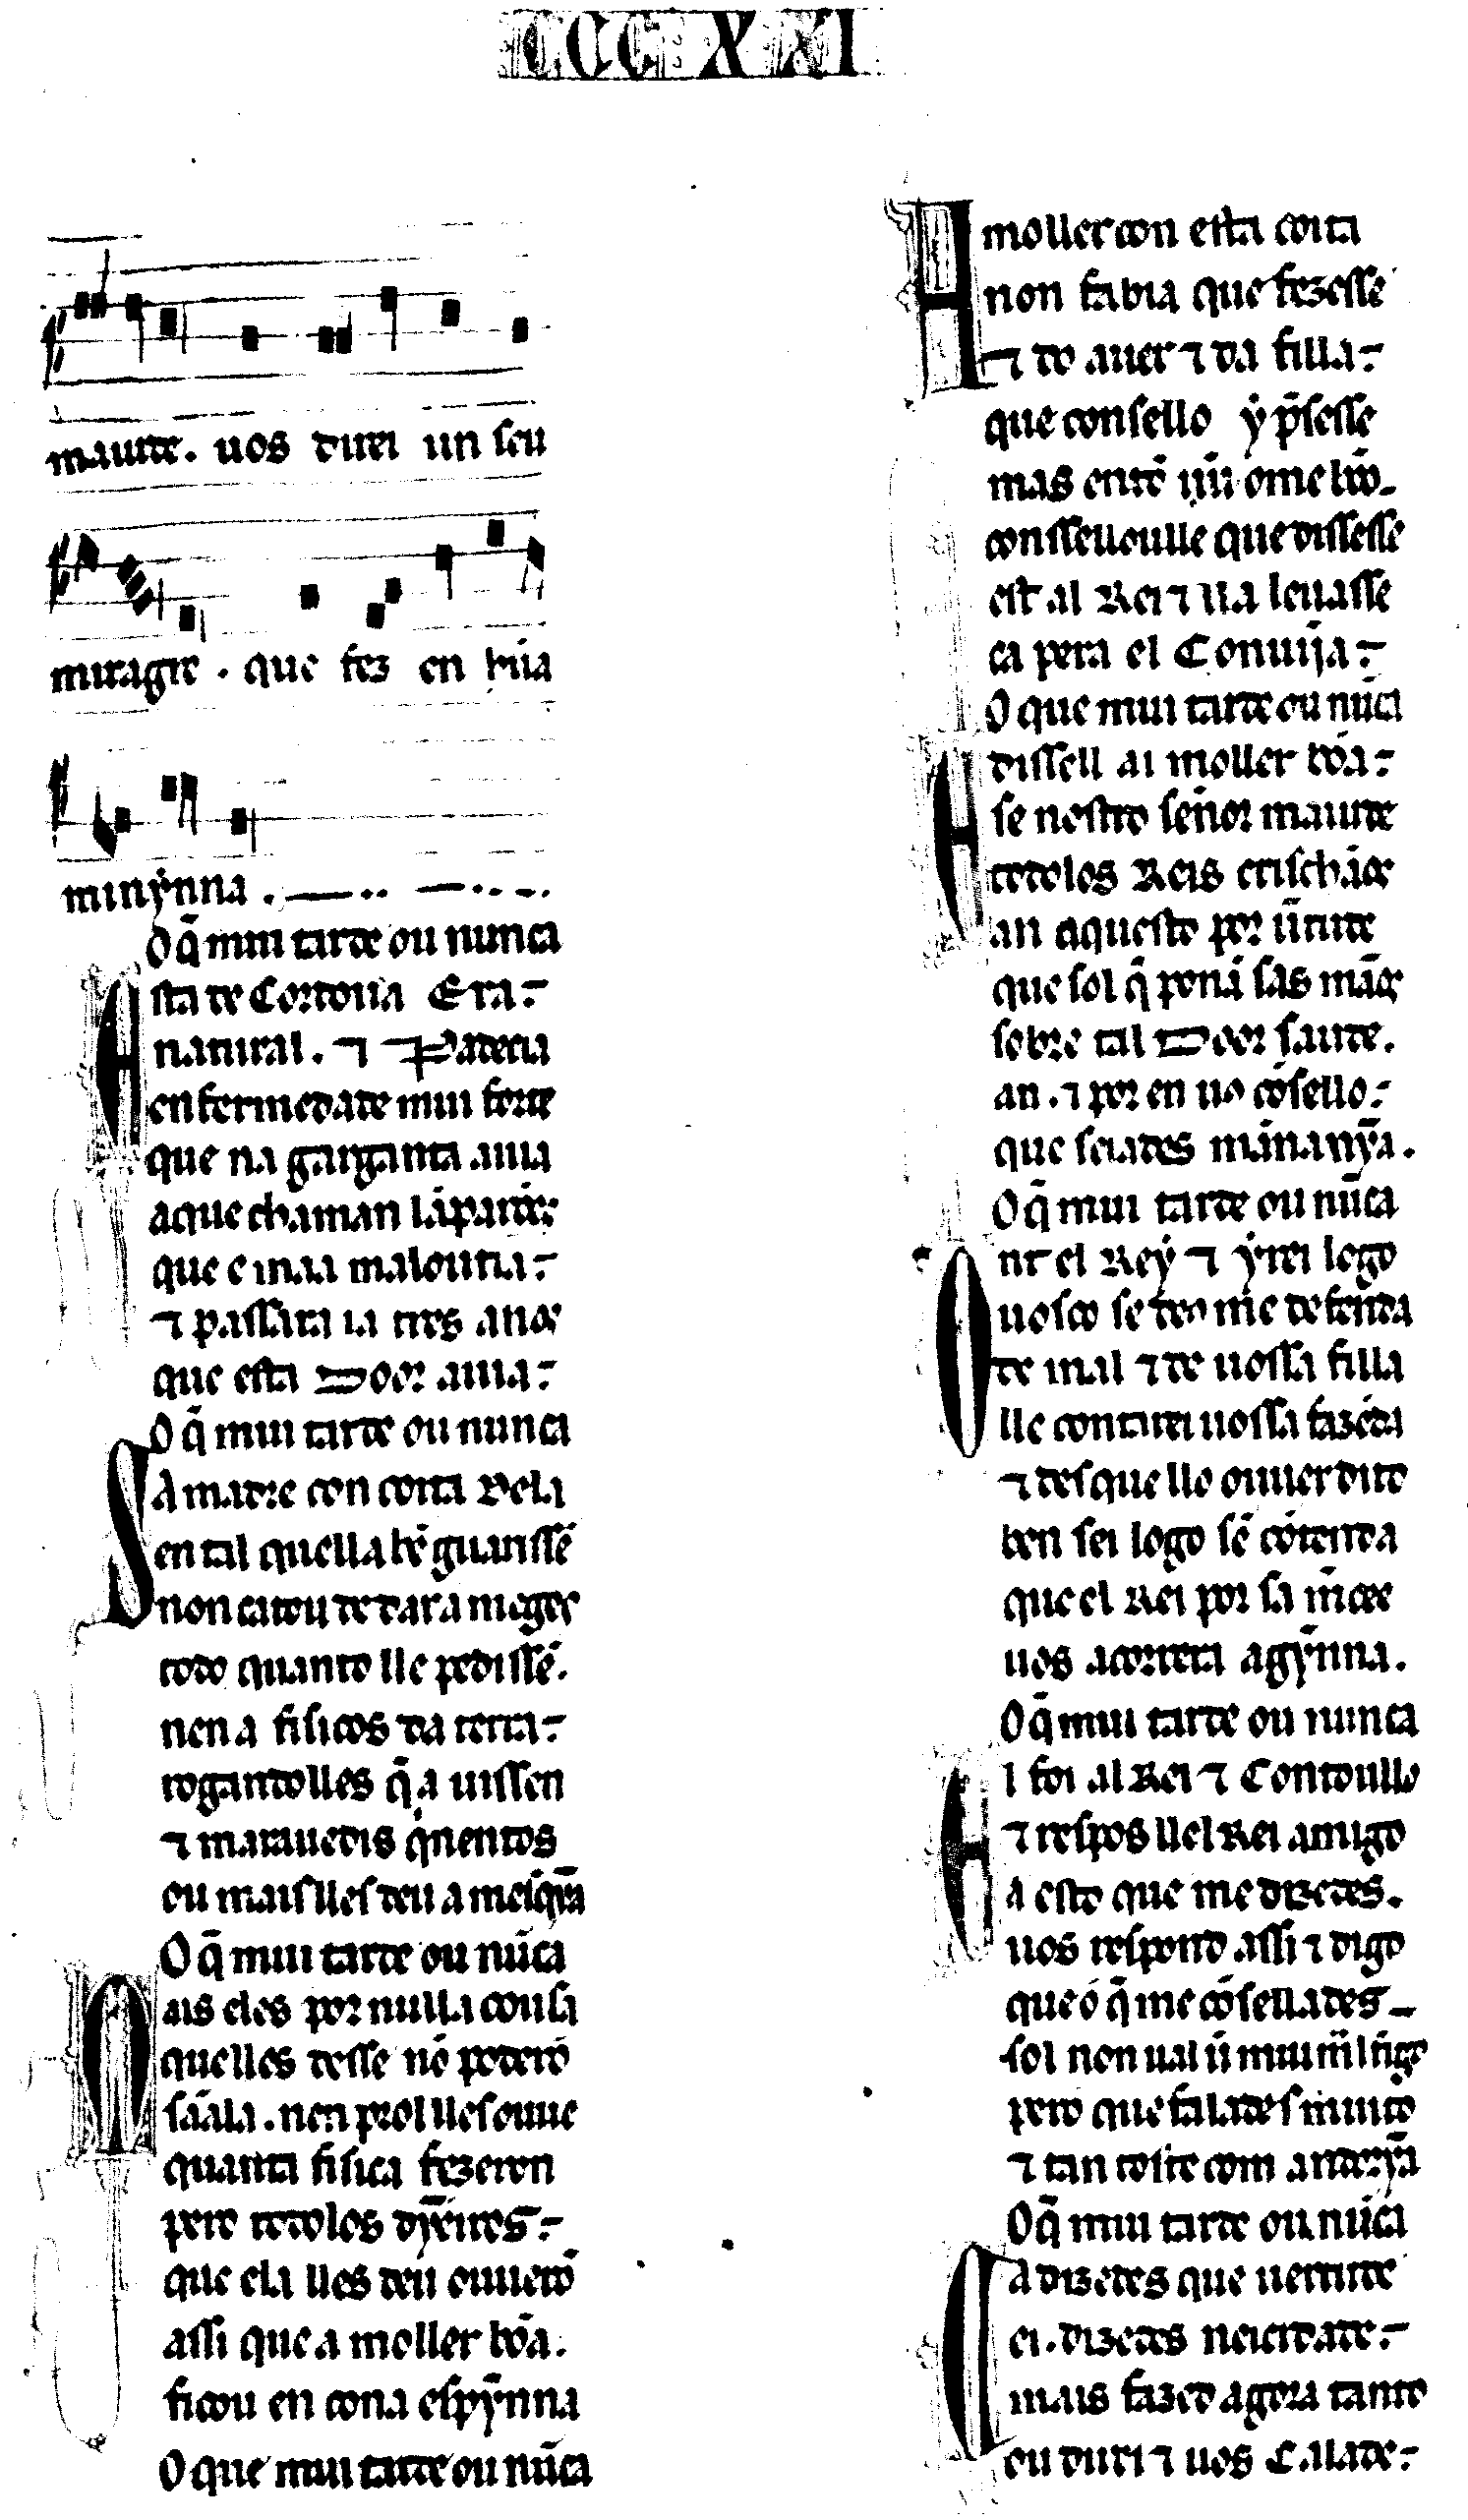 CCCXXI
maute. uos direi un seu
miragre. que fez en hũa
minỹnna.
O q̃ mui tarde ou nunca
sta de Cordoua Era
natural. ⁊ Padecia
enfermedade mui forte
que na garganta auia
a que chaman lãparões
que e maa malautia
⁊ passara ia tres anos
que esta Door auia
O q̃ mui tarde ou nunca
A madre con coita Dela
en tal que lla bẽ guarissẽ
non catou de dar a meges
todo quanto lle pedissẽ.
nen a fisicos da terra
rogandolles q̃ a uissen
⁊ marauedis q̃nentos
ou mais lles deu a mesq̃a
O q̃ mui tarde ou nũca
ais eles por nulla cousa
que lles desse nõ poderõ
sãala. nen prol lles ouue
quanta fisica fezeron
pero todolos dỹeiros
que ela lles deu ouuerõ
assi que a moller bõa.
ficou en cona espỹnna
O que mui tarde ou nũca
A moller con esta coita
non sabia que fezesse
⁊ do auer ⁊ da filla
que consello y p̃sesse
mas entõ ũu ome bõo
consselloulle que dissesse
est al Rei ⁊ lla leuasse
ca pera el Conuĩja
O que mui tarde ou nũca
dissell ai moller bõa
se nostro señor maiude
todolos Reis crischãos
an aquesto por ũtude
que sol q̃ ponã sas mãos
sobre tal Door saude.
an. ⁊ por en uo cõsello
que seiades mãnanỹa.
O q̃ mui tarde ou nũca
nt el Rey ⁊ yrei logo
uosco se deo me defenda
de mal ⁊ de uossa filla
lle contarei uossa fazẽda
⁊ des que llo ouuer dito
ben sei logo sẽ cõtenda
que el Rei por sa mercee
uos acorrera agỹnna.
O q̃ mui tarde ou nunca
l foi al Rei ⁊ Contoullo
⁊ respos llel Rei amigo
a esto que me dizedes.
uos respond assi ⁊ digo
que ó q̃ me cõsellades
sol non ual ũ muu m̃l figo
pero que falades muito
⁊ tan toste com andorỹa
O q̃ mui tarde ou nũca
a dizedes que uertude
ei. dizedes neicidade
mais fazed agora tanto
eu direi ⁊ uos Calade